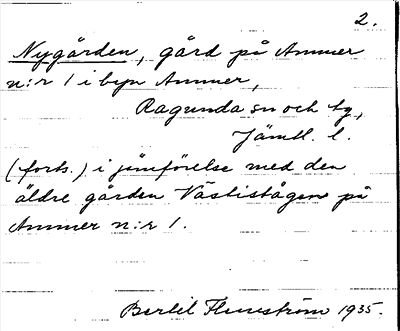 2.
Nygården, gård på Ammer
n:r 1 i byn Ammer,
Ragunda sn och tg,
Jämtl. l.
(forts.) i jämförelse med den
äldre gården Västistågen på
Ammer n:r 1.
Bertil Flemström 1935.